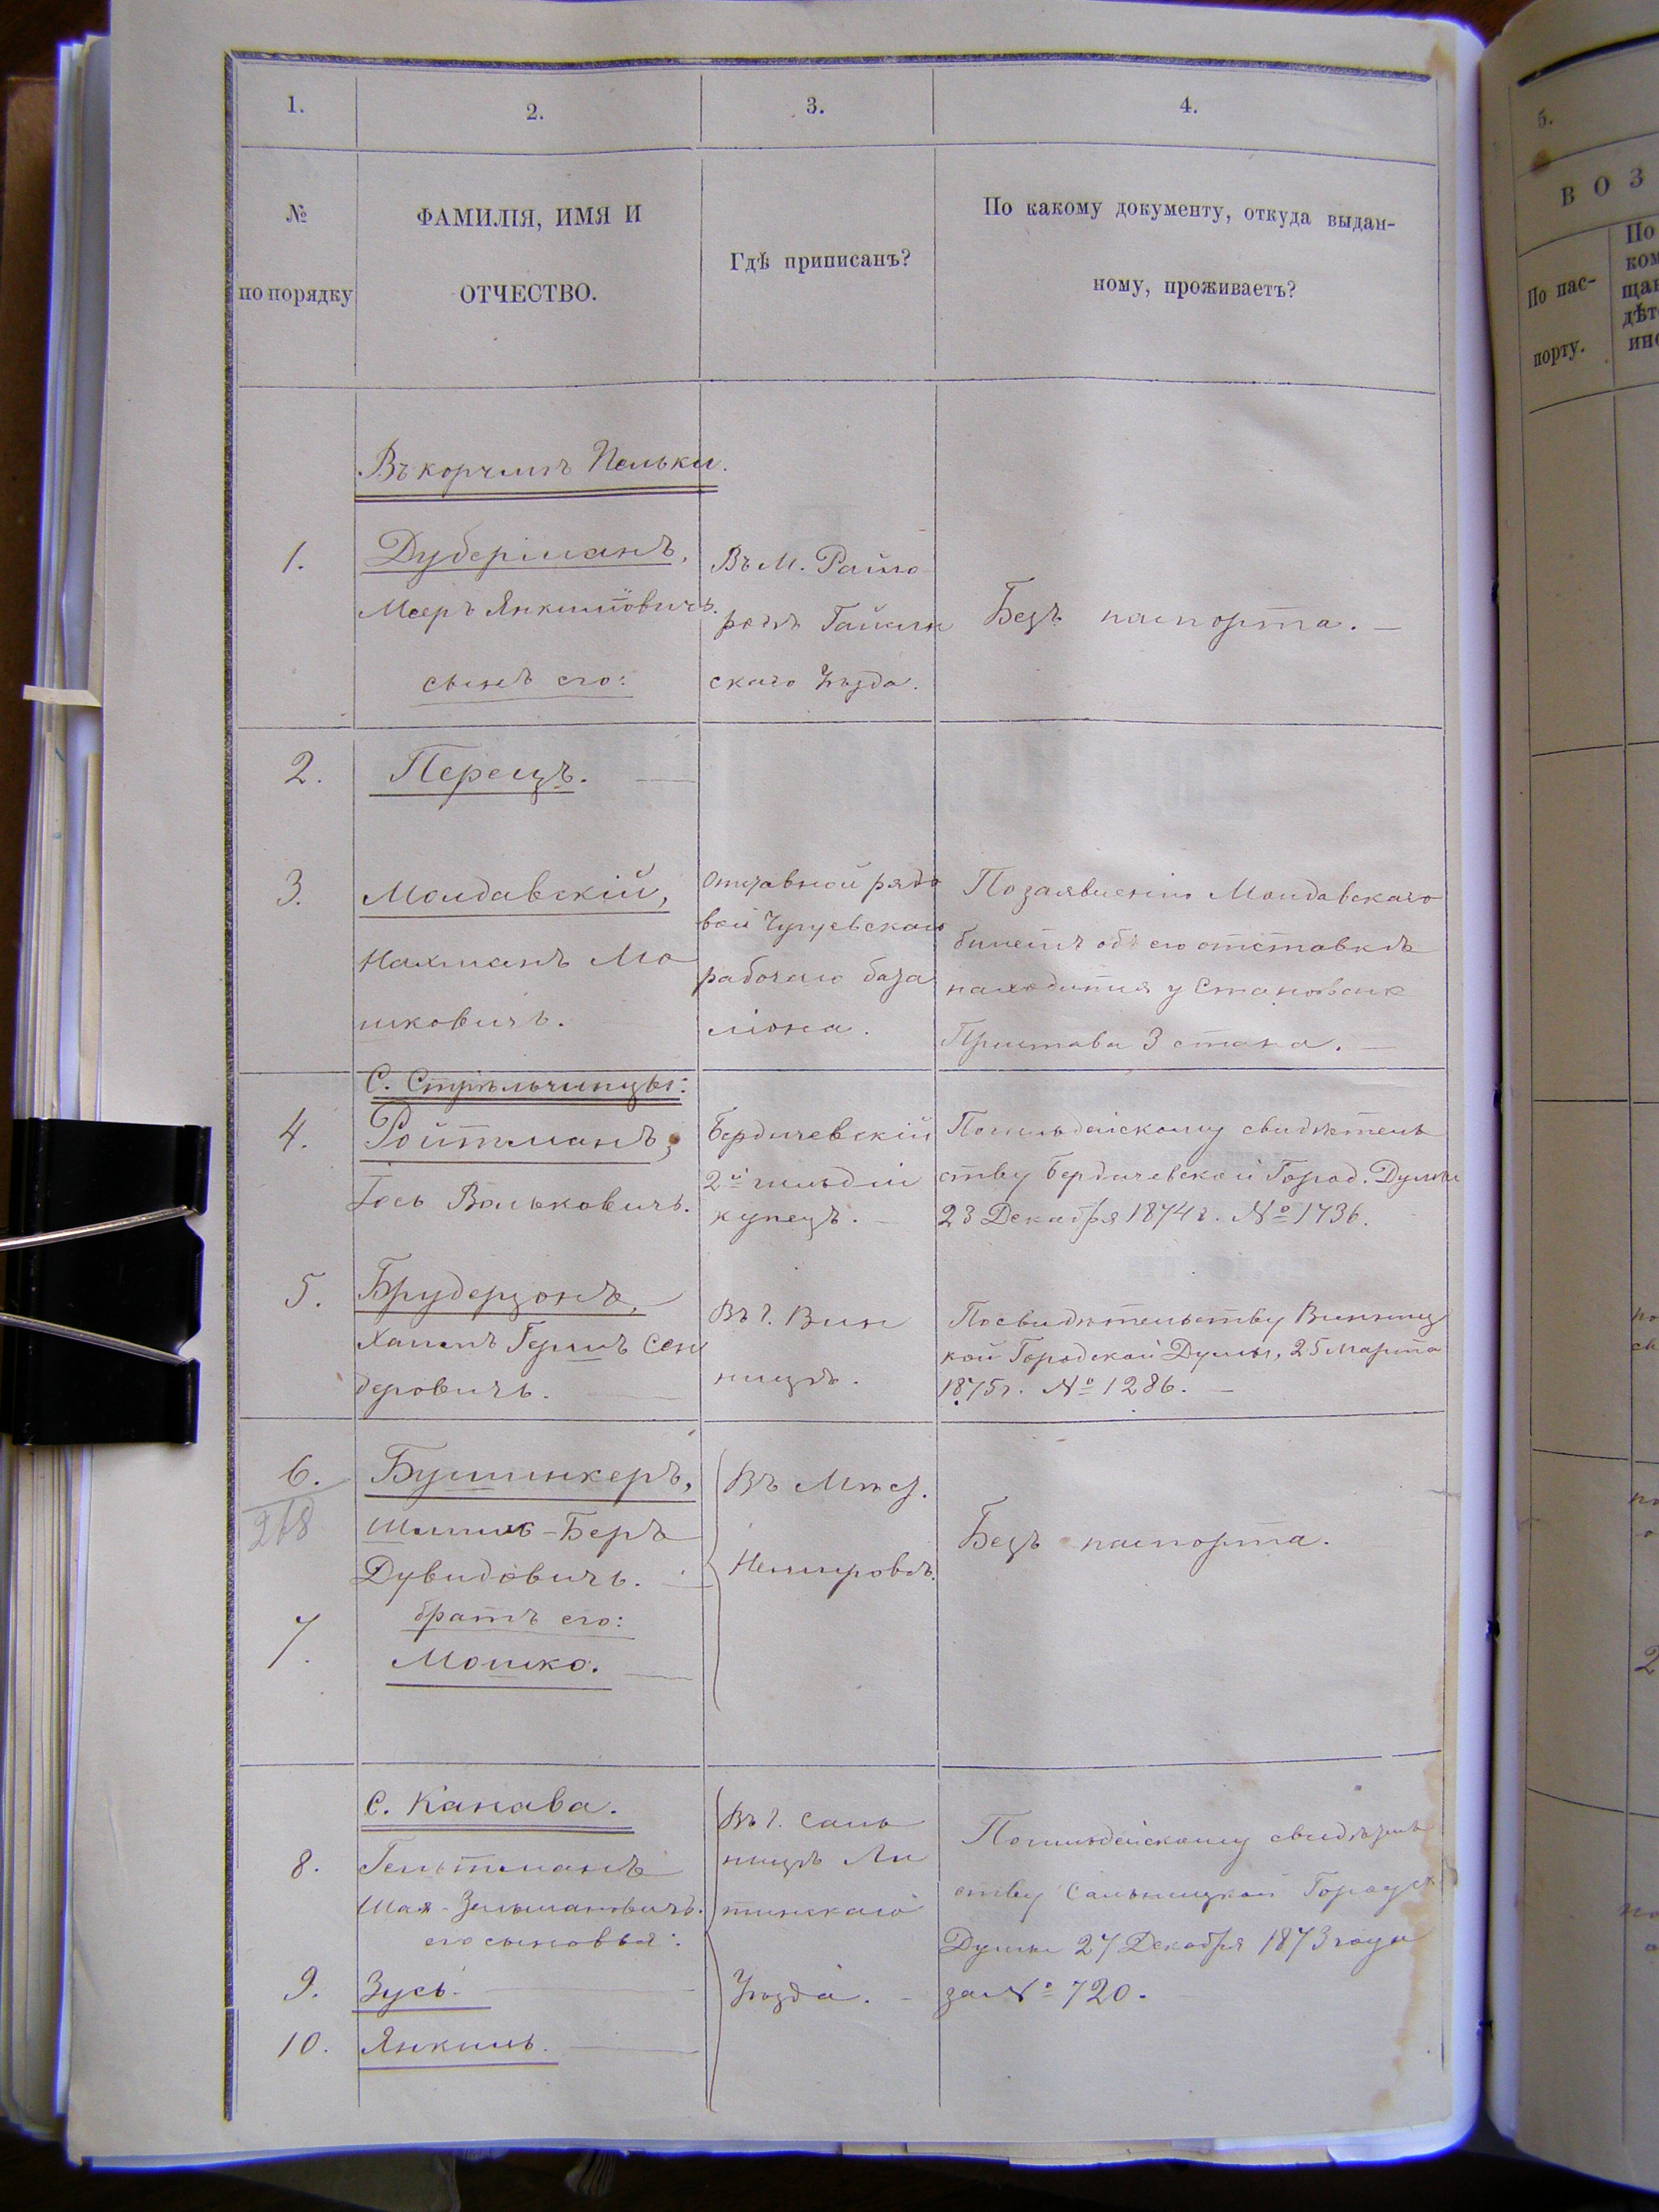 1.
2.
3.
4.
№
по порядку
ФАМИЛІЯ, ИМЯ И
ОТЧЕСТВО.
Гдѣ приписанъ?
По какому документу, откуда выдан-
ному, проживаетъ?
Въ корчмѣ
1.
Дуберманъ,
Мееръ Янкилiовичъ.
сынъ его:
Въ М. Райго
родѣ Гайсин
скаго Уѣзда.
Безъ паспорта. —
2.
Перецъ. —
3.
Молдавскій,
Нахманъ Мо
шковичъ.
Отставной рядо
вой Чугуевскаго
рабочаго бата
ліона.
По заявленію Молдавскаго
билетъ объ его отставкѣ
находится у Становаго
Пристава 3 стана. —
С. Стрѣльчинцы:
4.
Ройтманъ,
Іось Вольковичъ.
Бердичевскій
2й гильдіи
купецъ. —
По гильдейскому свидѣтель
ству Бердичевской Город. Думы
23 Декабря 1874 г. № 1736.
5.
Брудерзонъ,
Хаимъ Гершъ Сен
деровичъ. —
Въ г. Вин
ницѣ.
По свидѣтельству Винниц
кой Городской Думы, 25 Марта
1875 г. № 1286. —
6.
268
Бушинкеръ,
Шмиль-Беръ
Дувидовичъ. —
Въ Мѣс.
Немировѣ.
Безъ паспорта.
7.
братъ его:
Мошко. —
С. Канава.
8.
Гельтманъ
Шая-Зельмановичъ.
его сыновья:
9.
Зусь. —
10.
Янкиль. —
Въ г. Саль
ницѣ Ли
тинскаго
Уѣзда. —
По гильдейскому свидѣтель
ству Сальницкой Городск
Думы 27 Декабря 1873 года
за № 720.
5.
ВОЗ
По пас-
порту.
По
ком
щан
дѣт
ино